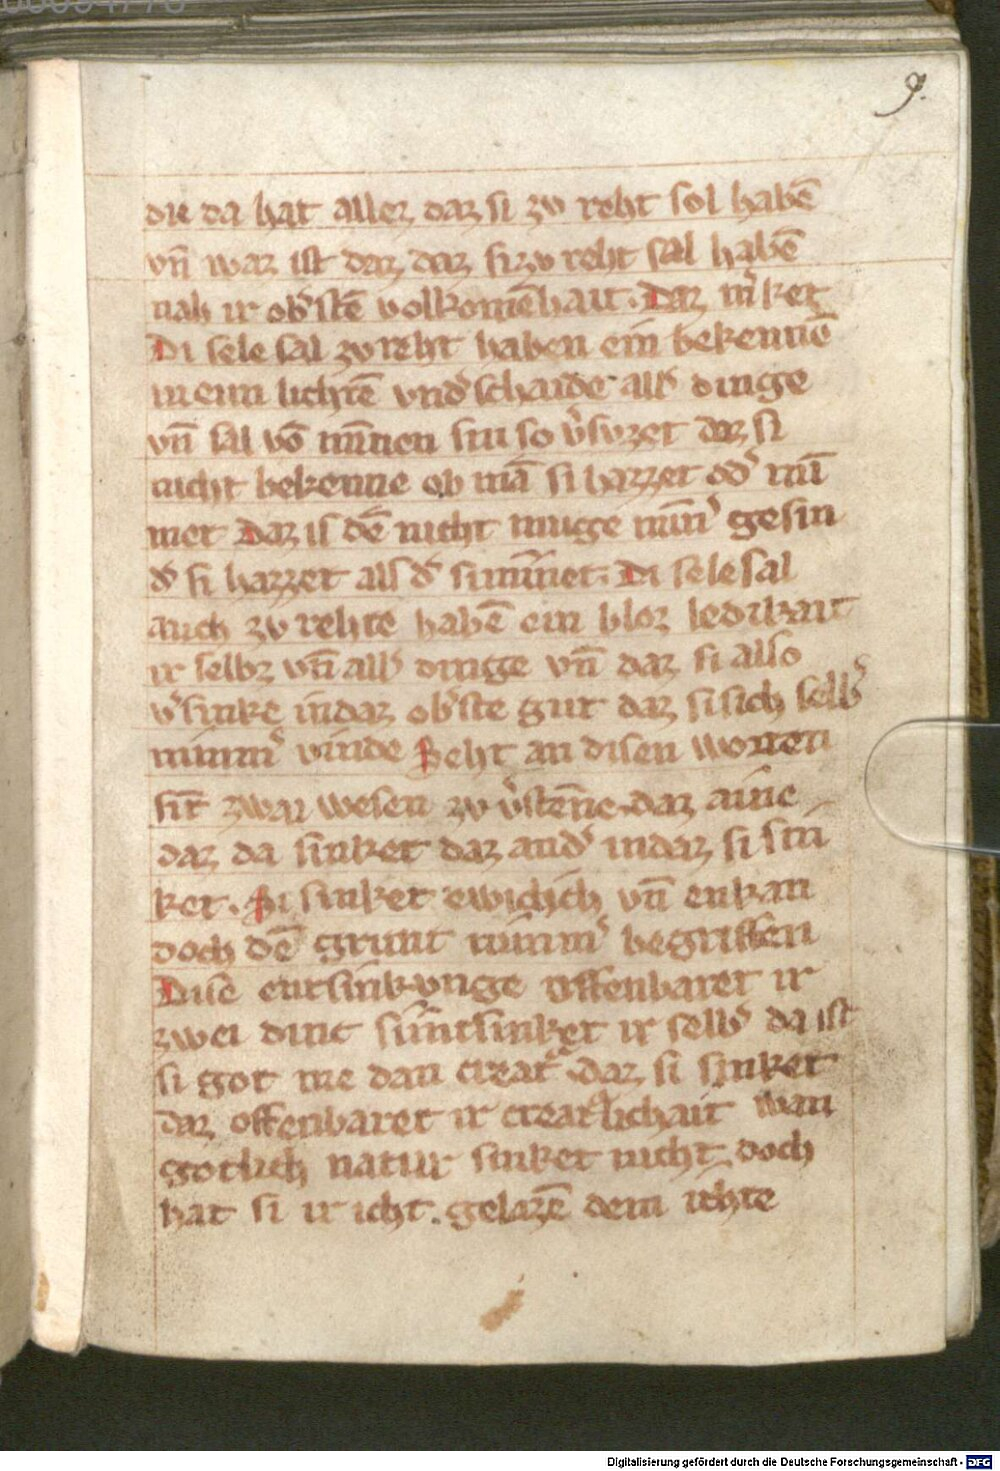 9.
die da hat allez daz si zv reht sol habē
vn̄ waz ist daz daz si zv reht sal habē
nah ir ob͛stē volkomēhait. Daz m͛ket
Di sele sal zv reht haben ein bekennē
in eim lichtē vnd͛schaide all͛ dinge
vn̄ sal vō minnen sin so v͛svzet daz si
nicht bekenne ob mā si hazzet od͛ min
net Daz is dē nicht muge minn͛ gesin
d͛ si hazzet als d͛ si minnet. Di sele sal
auch zv rehte habē ein bloz ledikait
ir selbz vn̄ all͛ dinge vn̄ daz si also
v͛sinke in daz ob͛ste gut daz si sich selb͛
nimm͛ vinde Seht an disen worten
sīt zwai wesen zv v͛stēne daz aine
daz da sinket daz and͛ in daz si sin
ket. Si sinket ewiclich vn̄ enkan
doch dē grunt nimm͛ begriffen
Dise entsinkunge offenbaret ir
zwei dinc si entsinket ir selb͛ da ist
si got me dan creat͛ daz si sinket
daz offenbaret ir creatlichait wan
gotlich natur sinket nicht doch
hat si ir icht. gelazē dem ichte
Digitalisierung gefördert durch die Deutsche Forschungsgemeinschaft - DFG